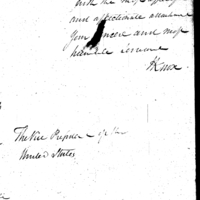 with the most
and affectionate attachment
Your sincere and most
humble servant
HKnox
The Vice President of the
United States